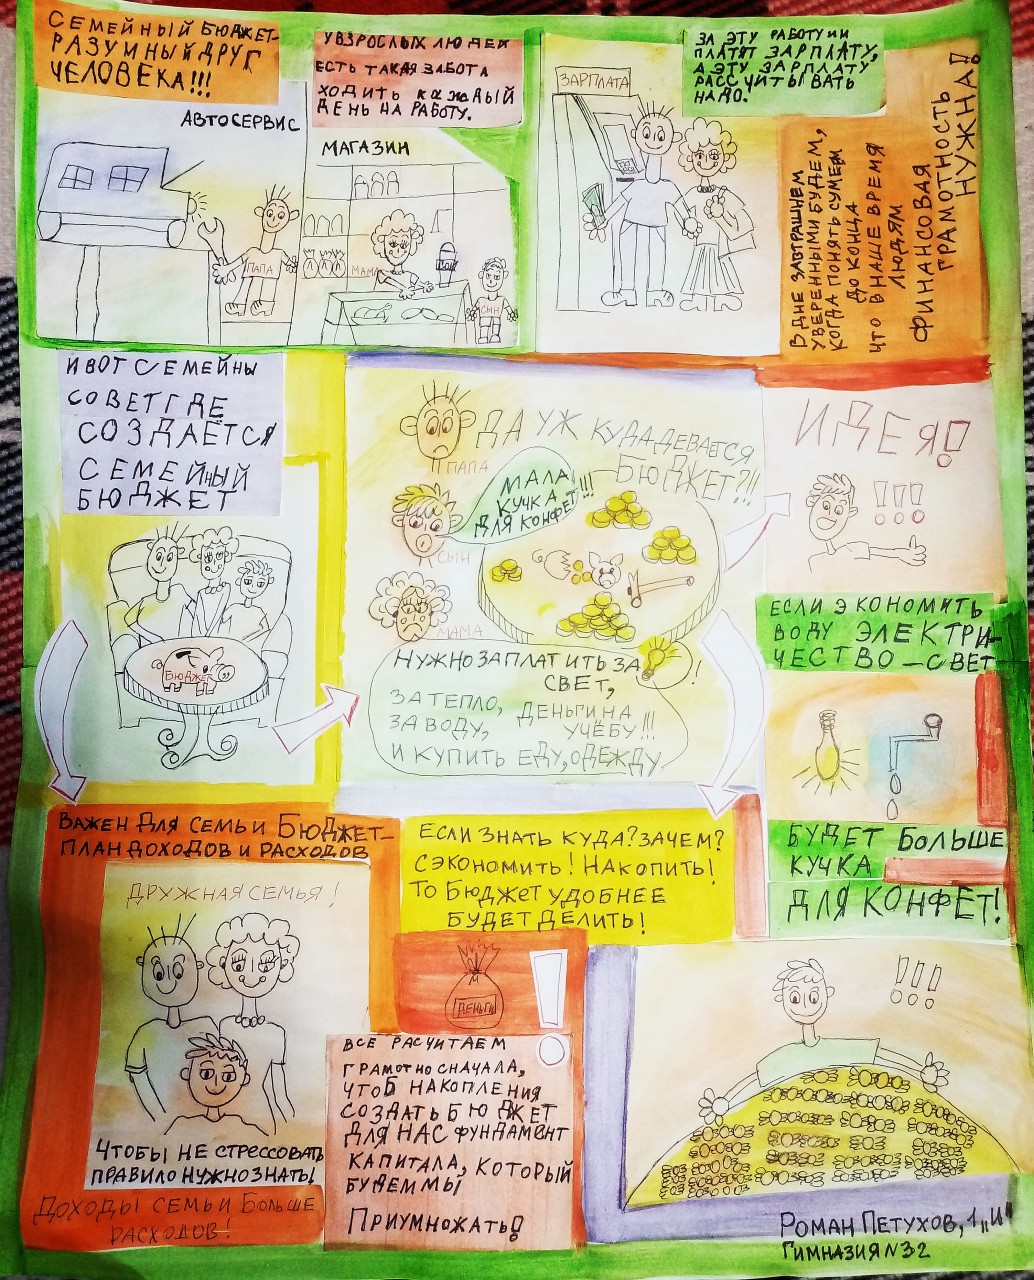 СЕМЕЙНЫЙ БЮДЖЕТ-
РАЗУМНЫЙ ДРУГ
ЧЕЛОВЕКА!!!
У ВЗРОСЛЫХ ЛЮДЕЙ
ЕСТЬ ТАКАЯ ЗАБОТА
ХОДИТЬ КАЖДЫЙ
ДЕНЬ НА РАБОТУ.
АВТОСЕРВИС
ПАПА
МАГАЗИН
МАМА
СЫН
ЗА ЭТУ РАБОТУ ИМ
ПЛАТЯТ ЗАРПЛАТУ,
А ЭТУ ЗАРПЛАТУ
РАССЧИТЫВАТЬ
НАДО.
ЗАРПЛАТА
В ДНЕ ЗАВТРАШНЕМ
УВЕРЕННЫМИ БУДЕМ,
КОГДА ПОНЯТЬ СУМЕЕМ
ДО КОНЦА
ЧТО В НАШЕ ВРЕМЯ
ЛЮДЯМ
ФИНАНСОВАЯ
ГРАМОТНОСТЬ
НУЖНА!
И ВОТ СЕМЕЙНЫ
СОВЕТ ГДЕ
СОЗДАЁТСЯ
СЕМЕЙНЫЙ
БЮДЖЕТ
БЮДЖЕТ
ДА УЖ КУДА ДЕВАТСЯ
БЮДЖЕТ?!!
ПАПА
МАЛА
КУЧКА
ДЛЯ КОНФЕТ!!!
СЫН
МАМА
НУЖНО ЗАПЛАТИТЬ ЗА
СВЕТ,
ЗА ТЕПЛО,
ЗА ВОДУ, ДЕНЬГИ НА
УЧЁБУ!!!
И КУПИТЬ ЕДУ, ОДЕЖДУ
ИДЕЯ!
!!!
ЕСЛИ ЭКОНОМИТЬ
ВОДУ ЭЛЕКТРИ-
ЧЕСТВО-СВЕТ
БУДЕТ БОЛЬШЕ
КУЧКА
ДЛЯ КОНФЕТ!
ВАЖЕН ДЛЯ СЕМЬИ БЮДЖЕТ-
ПЛАН ДОХОДОВ И РАСХОДОВ
ДРУЖНАЯ СЕМЬЯ!
ЧТОБЫ НЕ СТРЕССОВАТЬ
ПРАВИЛО НУЖНО ЗНАТЬ!
ДОХОДЫ СЕМЬИ БОЛЬШЕ
РАСХОДОВ!
ЕСЛИ ЗНАТЬ КУДА? ЗАЧЕМ?
СЭКОНОМИТЬ! НАКОПИТЬ!
ТО БЮДЖЕТ УДОБНЕЕ
БУДЕТ ДЕЛИТЬ!
ДЕНЬГИ
!
ВСЕ РАСЧИТАЕМ
ГРАМОТНО СНАЧАЛА,
ЧТОБ НАКОПЛЕНИЯ
СОЗДАТЬ БЮДЖЕТ
ДЛЯ НАС ФУНДАМЕНТ
КАПИТАЛА, КОТОРЫЙ
БУДЕМ МЫ
ПРИУМНОЖАТЬ!
!!!
РОМАН ПЕТУХОВ, 1 „И"
ГИМНАЗИЯ N32